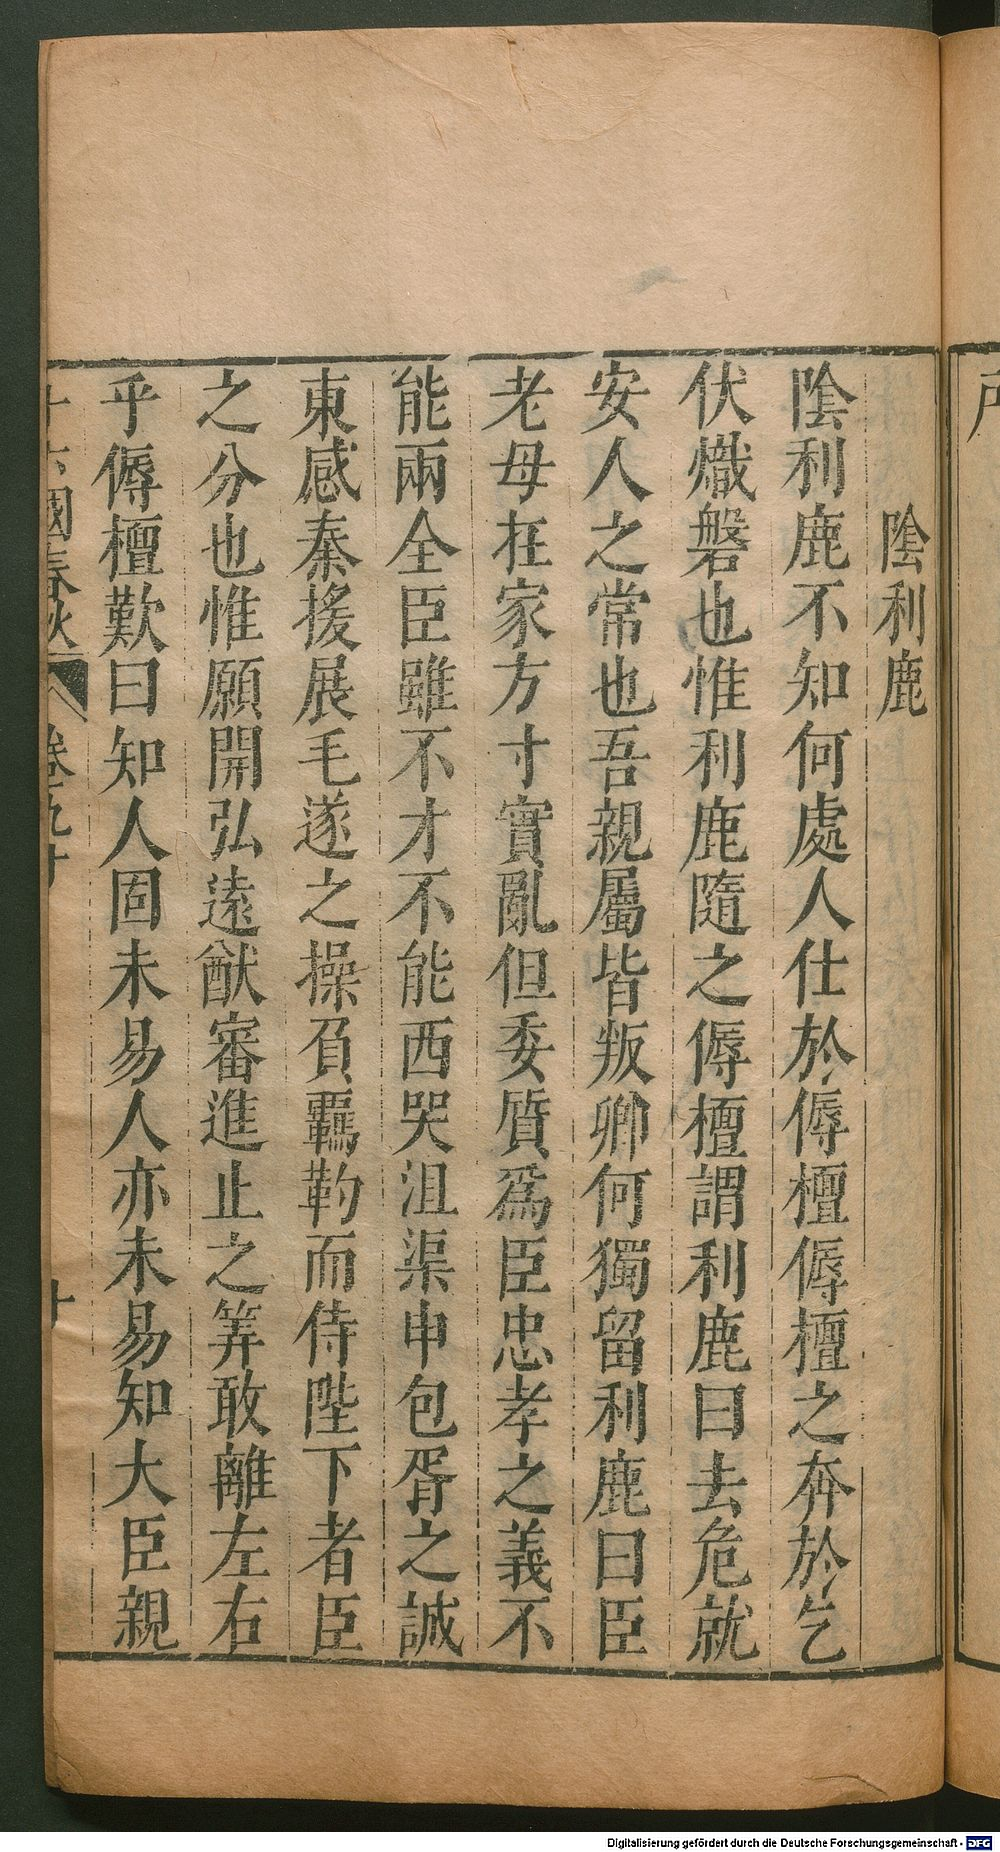 陰利鹿
陰利鹿不知何處人仕於傉檀傉檀之奔於乞
伏熾磐也惟利鹿隨之傉檀謂利鹿曰去危就
安人之常也吾親屬皆叛卿何獨留利鹿曰臣
老母在家方寸實亂但委質爲臣忠孝之義不
能兩全臣雖不才不能西哭沮渠申包胥之誠
東感秦援展毛遂之操負羈靮而侍陛下者臣
之分也惟願開弘遠猷審進止之筭敢離左右
乎傉檀歎曰知人固未易人亦未易知大臣親
十六國春秋 卷九十 十
Digitalisierung gefördert durch die Deutsche Forschungsgemeinschaft - DFG